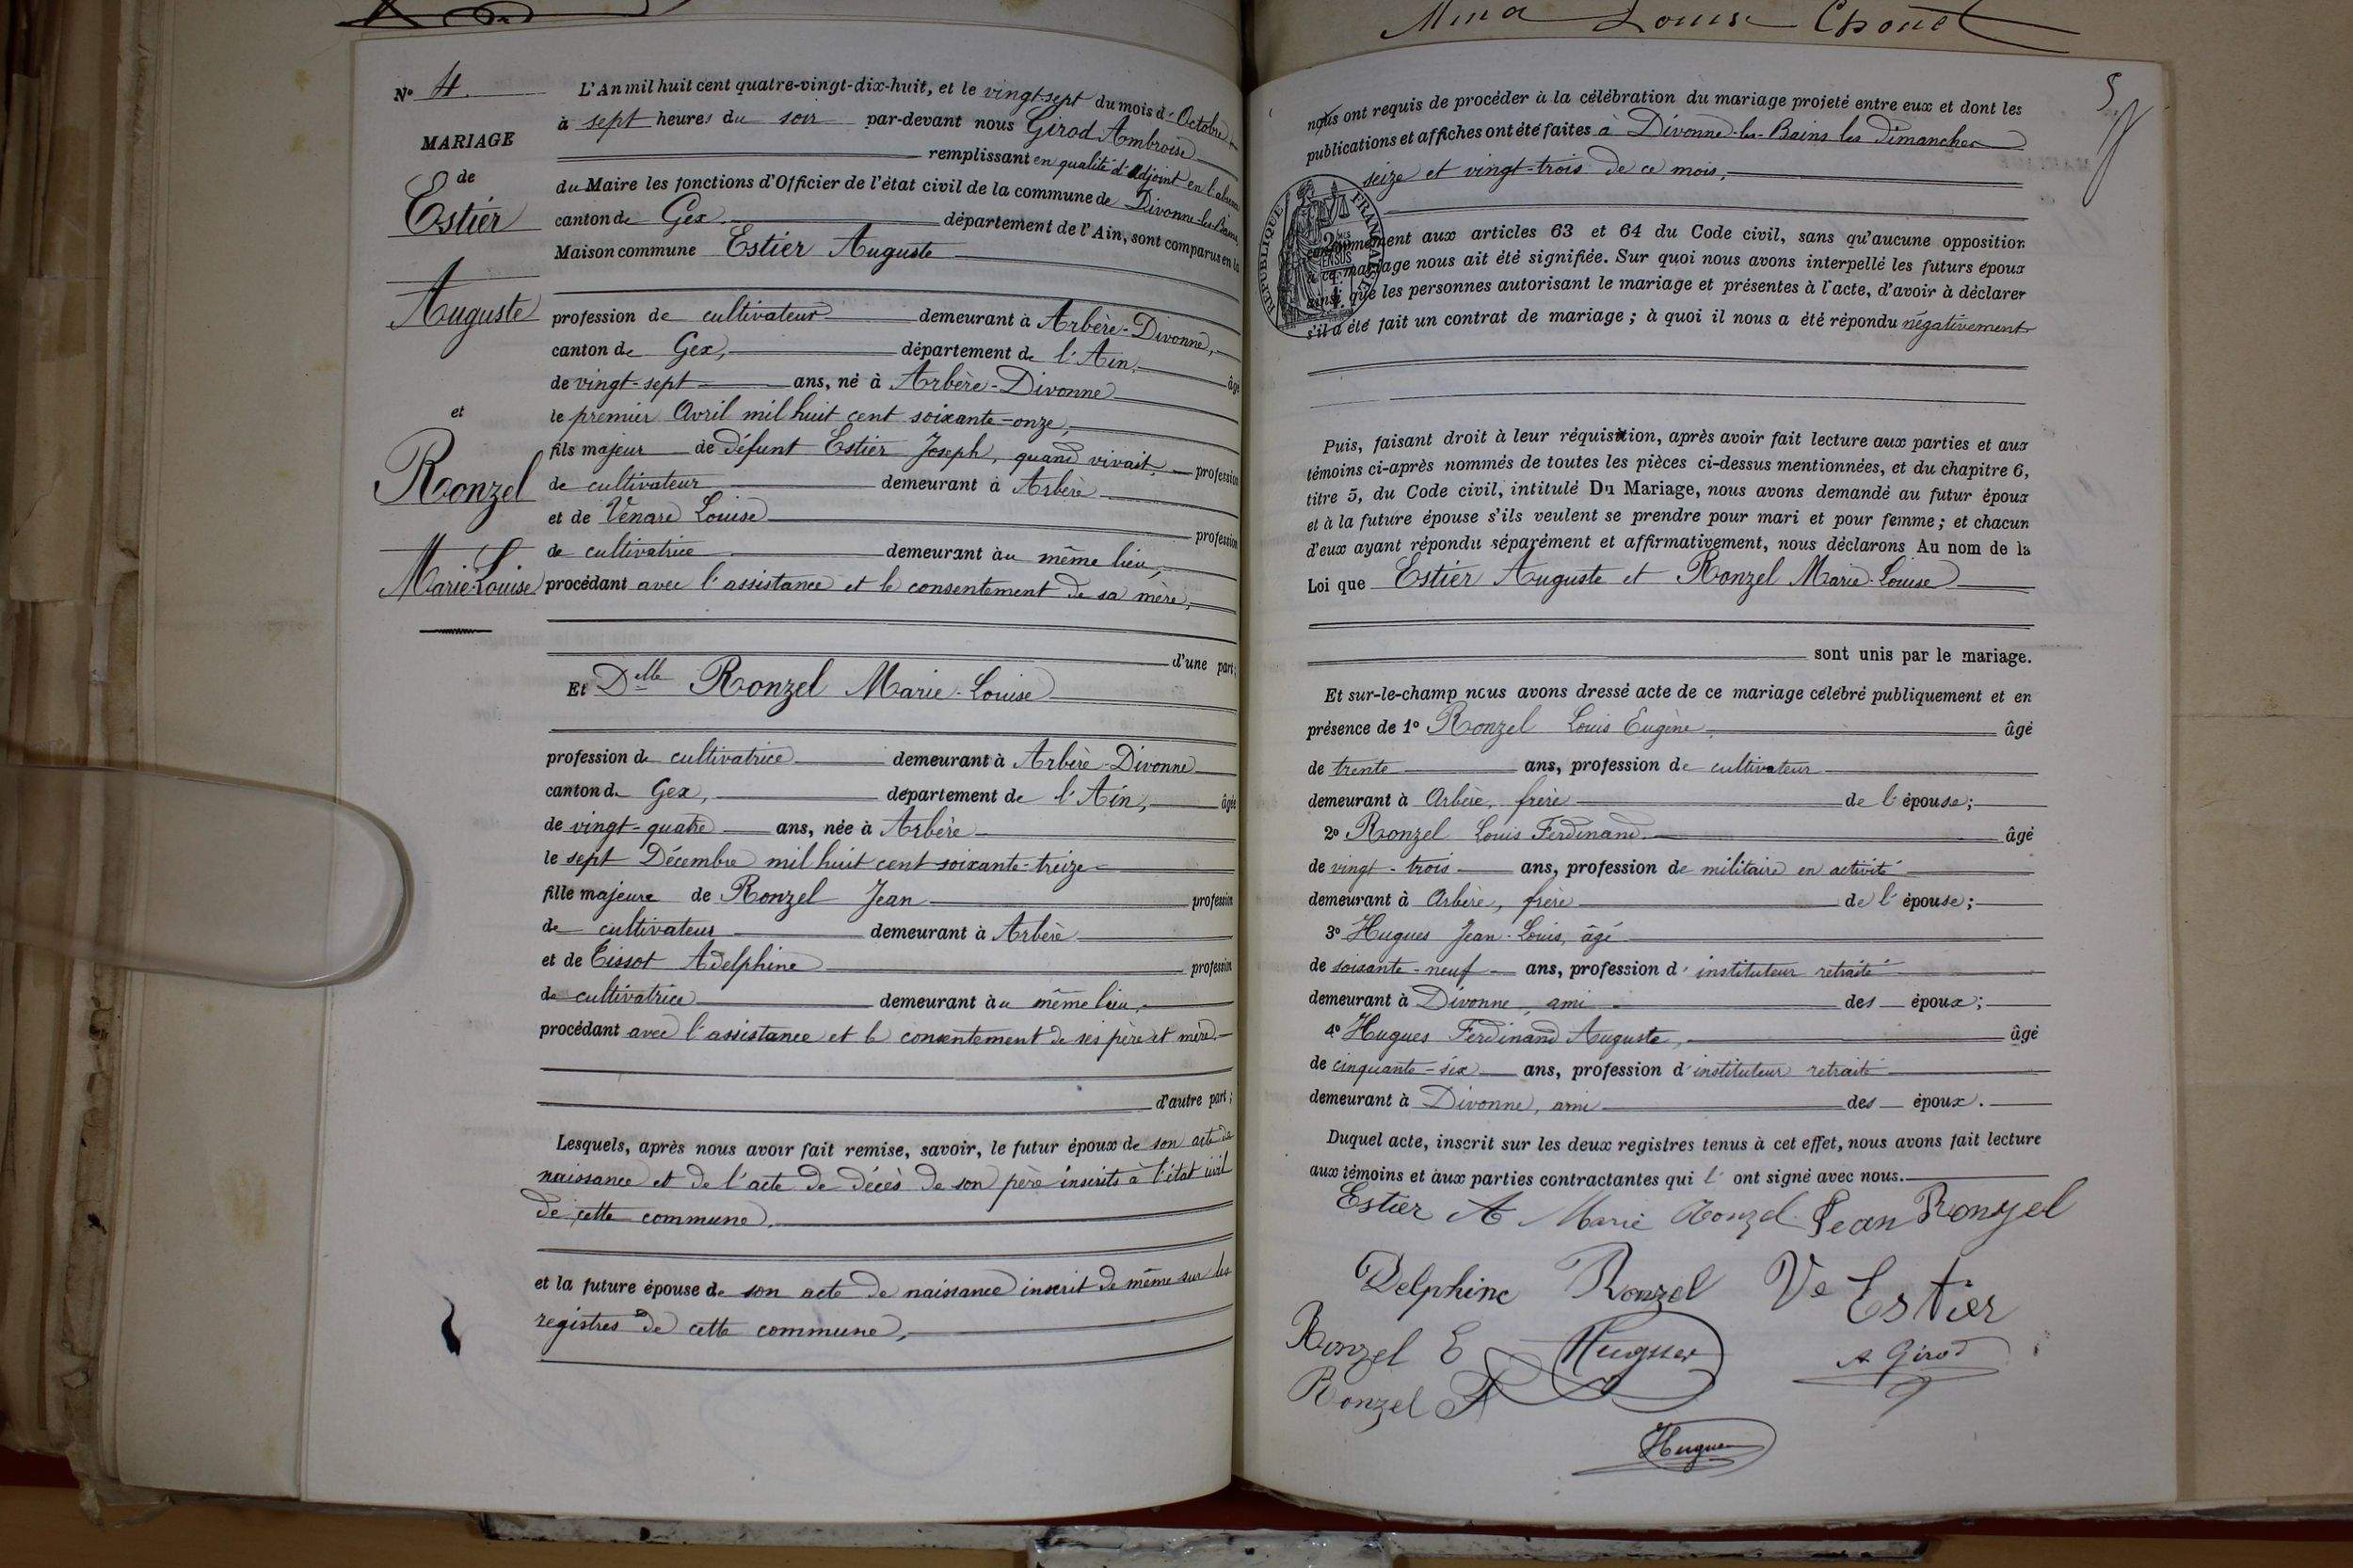 N° 4.
MARIAGE
de
Estier
Auguste
et
Ronzel
Marie-Louise
L'An mil huit cent quatre-vingt-dix-huit, et le vingt-sept du mois d'Octobre
à sept heures du soir par-devant nous Girod Ambroise
remplissant en qualité d'adjoint en l'absence
du Maire les fonctions d'Officier de l'état civil de la commune de Divonne-les-Bains,
canton de Gex département de l'Ain, sont comparus en la
Maison commune Estier Auguste
profession de cultivateur demeurant à Arbère-Divonne,
canton de Gex, département de l'Ain, âgé
de vingt-sept ans, né à Arbère-Divonne
le premier Avril mil huit cent soixante-onze,
fils majeur de défunt Estier Joseph, quand vivait profession
de cultivateur demeurant à Arbère
et de Venare Louise profession
de cultivatrice demeurant au même lieu,
procédant avec l'assistance et le consentement de sa mère,
d'une part;
Et Delle Ronzel Marie-Louise
profession de cultivatrice demeurant à Arbère-Divonne
canton de Gex, département de l'Ain, âgée
de vingt-quatre ans, née à Arbère
le sept Décembre mil huit cent soixante-treize
fille majeure de Ronzel Jean profession
de cultivateur demeurant à Arbère
et de Tissot Adelphine profession
de cultivatrice demeurant au même lieu,
procédant avec l'assistance et le consentement de ses père et mère
d'autre part;
Lesquels, après nous avoir fait remise, savoir, le futur époux de son acte de
naissance et de l'acte de décès de son père inscrits à l'état civil
de cette commune,
et la future épouse de son acte de naissance inscrit de même sur les
registres de cette commune,
Louise
5
nous ont requis de procéder à la célébration du mariage projeté entre eux et dont les
publications et affiches ont été faites à Divonne-les-Bains les dimanches
seize et vingt-trois de ce mois,
RÉPUBLIQUE FRANÇAISE
conformément aux articles 63 et 64 du Code civil, sans qu'aucune opposition
à ce mariage nous ait été signifiée. Sur quoi nous avons interpellé les futurs époux
ainsi que les personnes autorisant le mariage et présentes à l'acte, d'avoir à déclarer
s'il a été fait un contrat de mariage; à quoi il nous a été répondu négativement
Puis, faisant droit à leur réquisition, après avoir fait lecture aux parties et aux
témoins ci-après nommés de toutes les pièces ci-dessus mentionnées, et du chapitre 6,
titre 5, du Code civil, intitulé Du Mariage, nous avons demandé au futur époux
et à la future épouse s'ils veulent se prendre pour mari et pour femme; et chacun
d'eux ayant répondu séparément et affirmativement, nous déclarons Au nom de la
Loi que Estier Auguste et Ronzel Marie-Louise
sont unis par le mariage.
Et sur-le-champ nous avons dressé acte de ce mariage célébré publiquement et en
présence de 1° Ronzel Louis Eugène âgé
de trente ans, profession de cultivateur
demeurant à Arbère, frère de l'épouse;
2° Ronzel Louis Ferdinand âgé
de vingt-trois ans, profession de militaire en activité
demeurant à Arbère, frère de l'épouse;
3° Hugues Jean-Louis, âgé
de soixante-neuf ans, profession d'instituteur retraité
demeurant à Divonne, ami des époux;
4° Hugues Ferdinand Auguste, âgé
de cinquante-six ans, profession d'instituteur retraité
demeurant à Divonne, ami des époux.
Duquel acte, inscrit sur les deux registres tenus à cet effet, nous avons fait lecture
aux témoins et aux parties contractantes qui l'ont signé avec nous.
Estier A Marie Ronzel Jean Ronzel
Delphine Ronzel Ve Estier
Ronzel E Hugues A Girod
Ronzel F
Hugues